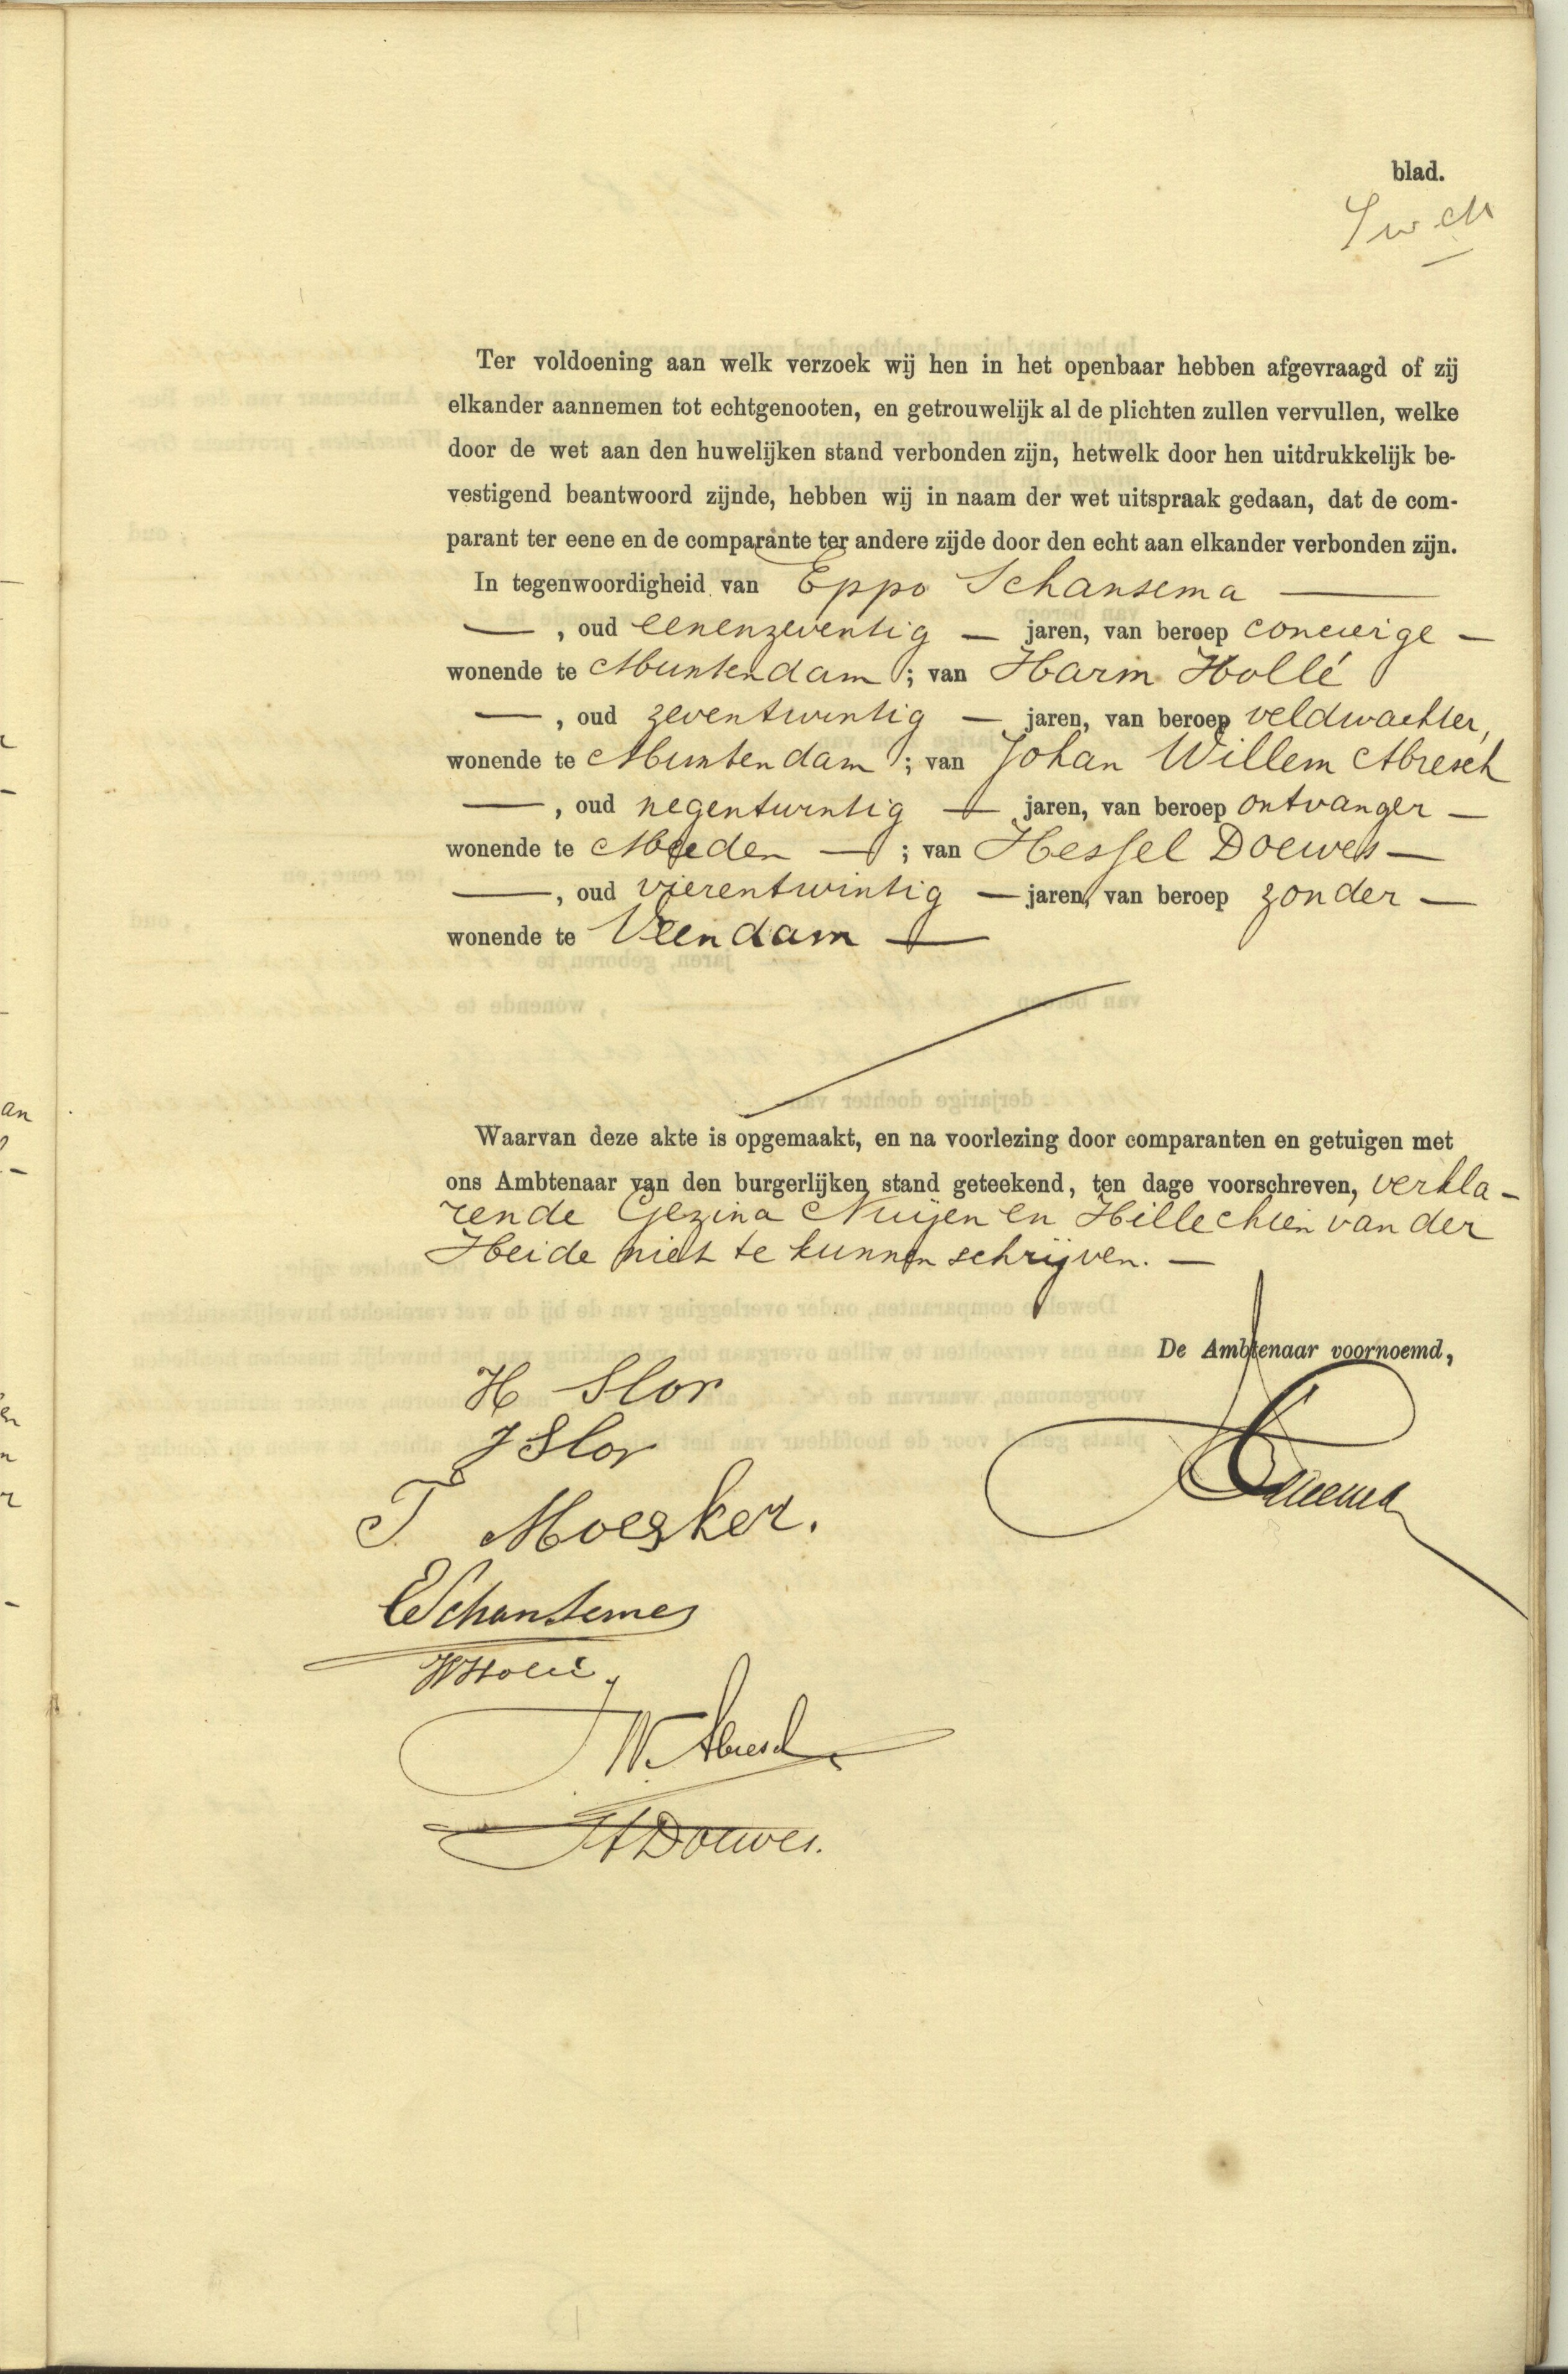 blad.
Ter voldoening aan welk verzoek wij hen in het openbaar hebben afgevraagd of zij
elkander aannemen tot echtgenooten, en getrouwelijk al de plichten zullen vervullen, welke
door de wet aan den huwelijken stand verbonden zijn, hetwelk door hen uitdrukkelijk be-
vestigend beantwoord zijnde, hebben wij in naam der wet uitspraak gedaan, dat de com-
parant ter eene en de comparante ter andere zijde door den echt aan elkander verbonden zijn.
In tegenwoordigheid van Eppo Schansema —
—, oud eenenzeventig — jaren, van beroep concierge —
wonende te Muntendam ; van Harm Hollé
—, oud zeventwintig — jaren, van beroep veldwachter,
wonende te Muntendam ; van Johan Willem Abresch
—, oud negentwintig — jaren, van beroep ontvanger —
wonende te Meeden — ; van Hessel Doewes —
—, oud vierentwintig — jaren, van beroep zonder —
wonende te Veendam —
Waarvan deze akte is opgemaakt, en na voorlezing door comparanten en getuigen met
ons Ambtenaar van den burgerlijken stand geteekend, ten dage voorschreven, verkla-
rende Gezina Nuijen en Hillechien van der
Heide niet te kunnen schrijven. —
De Ambtenaar voornoemd,
H Slor
J Slor
T Moesker.
ESchansema
HHollé
JW. Abresch
H Douwes.